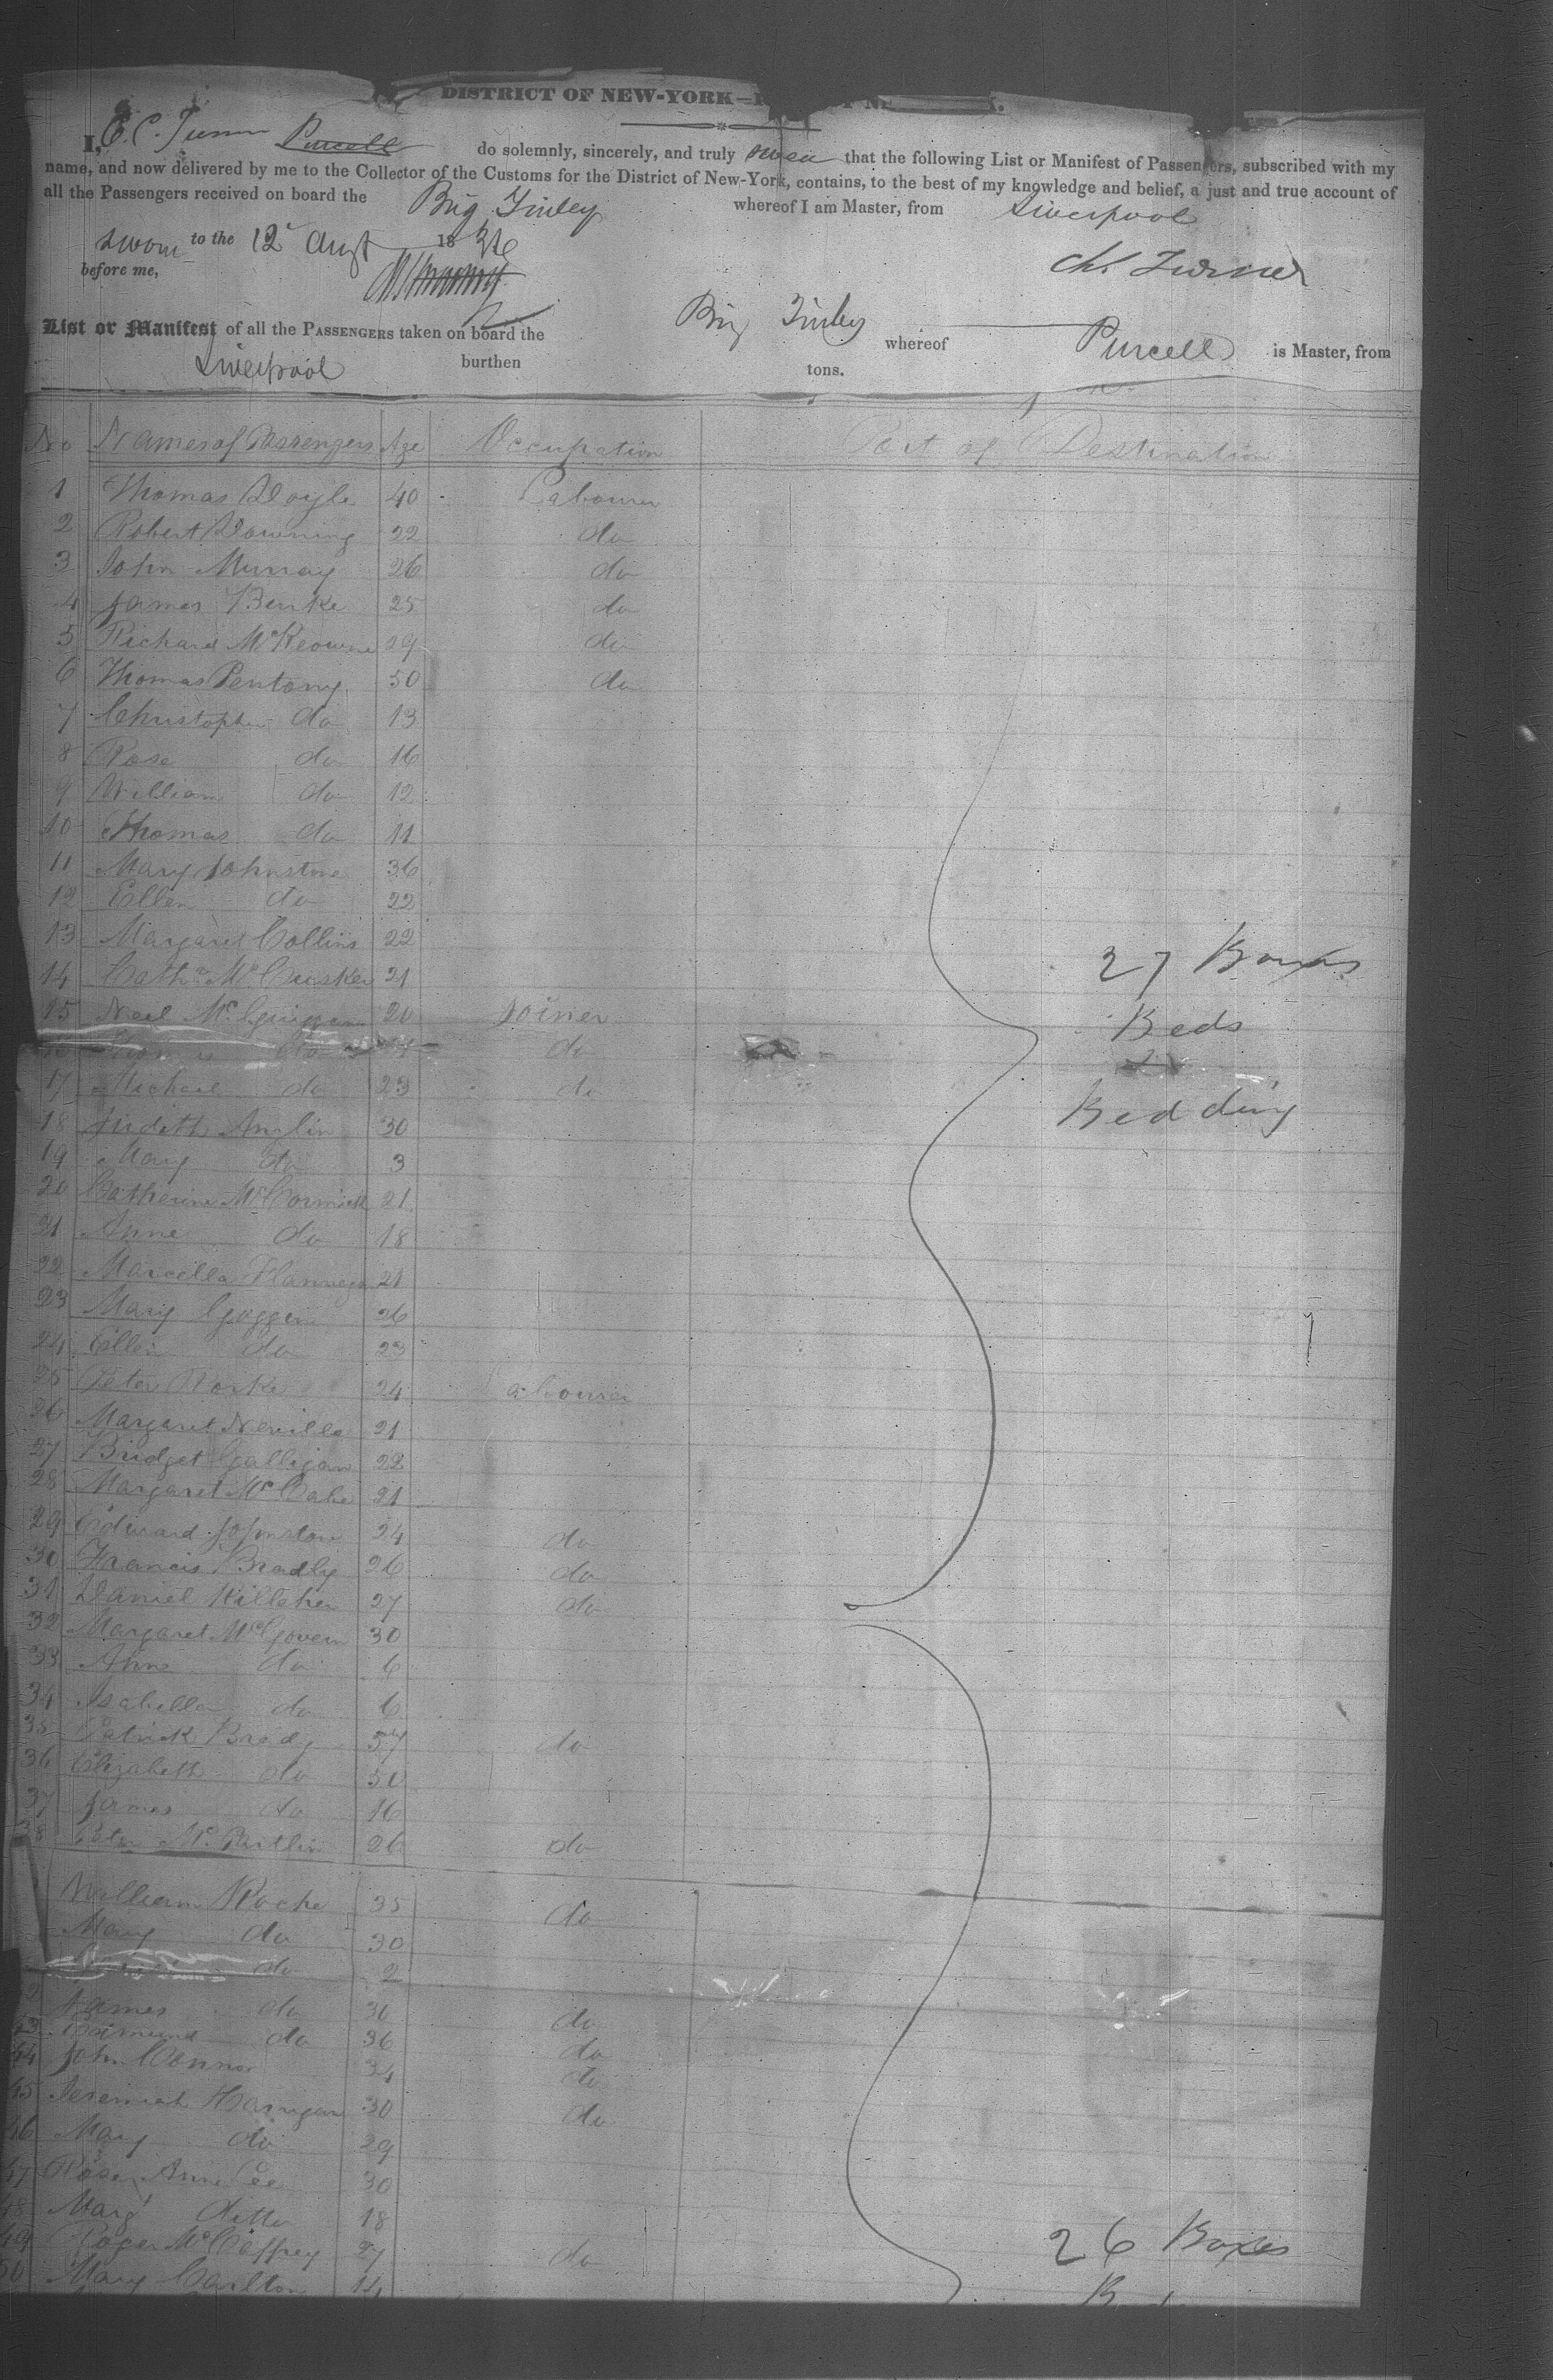 DISTRICT OF NEW-YORK—
I, E. C. Turner Purcell do solemnly, sincerely, and truly swear that the following List or Manifest of Passengers, subscribed with my
name, and now delivered by me to the Collector of the Customs for the District of New-York, contains, to the best of my knowledge and belief, a just and true account of
all the Passengers received on board the Brig whereof I am Master, from Liverpool
sworn to the 12 Augt 1836
before me,
Chs Turner
List or Manifest of all the PASSENGERS taken on board the Brig whereof Purcell is Master, from
Liverpool burthen tons.
No Names of Passengers Age Occupation Port of Destination
1 Thomas Doyle 40 Labourer
2 Robert Downing 22 do
3 John Murray 26 do
4 James Burke 25 do
5 Richard McKeowne 29 do
6 Thomas Pentony 50 do
7 Christopher do 13
8 Rose do 16
9 William do 12
10 Thomas do 11
11 Mary Johnstone 36
12 Ellen do 22
13 Margaret Collins 22
14 Cathe McCusker 21
27 Boxes
15 Neal McGuiggan 20 Joiner
Beds
16 do do
17 Michael do 23 do
Bedding
18 Judith Anglin 30
19 Mary do 3
20 Catherine McCormick 21
21 Anne do 18
22 Marcella Flannegan 21
23 Mary Goggin 26
24 Ellen do 23
25 Peter Rorke 24 Labourer
26 Margaret Neville 21
27 Bridget Galligan 22
28 Margaret McCabe 21
29 Edward Johnston 24 do
30 Francis Bradly 26 do
31 Daniel Killeher 27 do
32 Margaret McGovern 30
33 Ann do 6
34 Isabella do 6
35 Patrick Brady 57 do
36 Elizabeth do 50
37 James do 16
Peter McPartlin 26 do
William Roche 35 do
Mary do 30
do 2
James do 30 do
43 Edmund do 36 do
44 John Connor 34 do
45 Jeremiah Harrigan 30 do
46 Mary do 29
47 Rose Anne Lee 30
48 Margt Ditto 18
49 Roger McCaffrey 27 do
26 Boxes
50 Mary Carlton 14